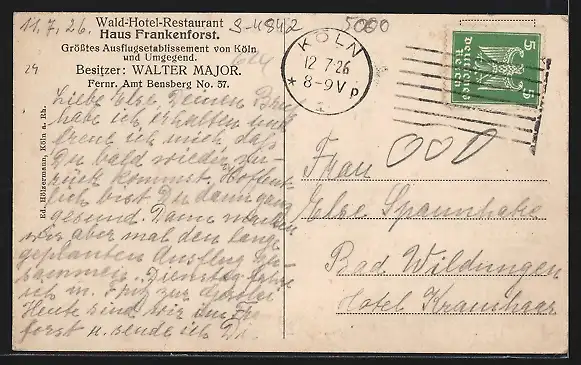 11.7.26. Wald-Hotel-Restaurant
S-4842
5000
Haus Frankenforst.
Größtes Ausflugsetablissement von Köln
und Umgegend.
Besitzer: WALTER MAJOR.
Fernr. Amt Bensberg No. 37.
24
KÖLN
12 7.26
* 8-9V p
5 5
Deutsches Reich
Liebe Else, Deinen Brief
habe ich erhalten und
freue ich mich, daß
Du bald wieder zu-
rück kommst. Hoffent-
lich bist Du dann ganz
gesund. Dann machen
wir aber mal den lange
geplanten Ausflug zu-
sammen. Dienstag fahre
ich m. zur
Heute sind wir in
forst u. sende ich Dir
Ed. Hölzermann, Köln a. Rh.
Frau
Else Spannhake
Bad Wildungen
Hotel Kraushaar